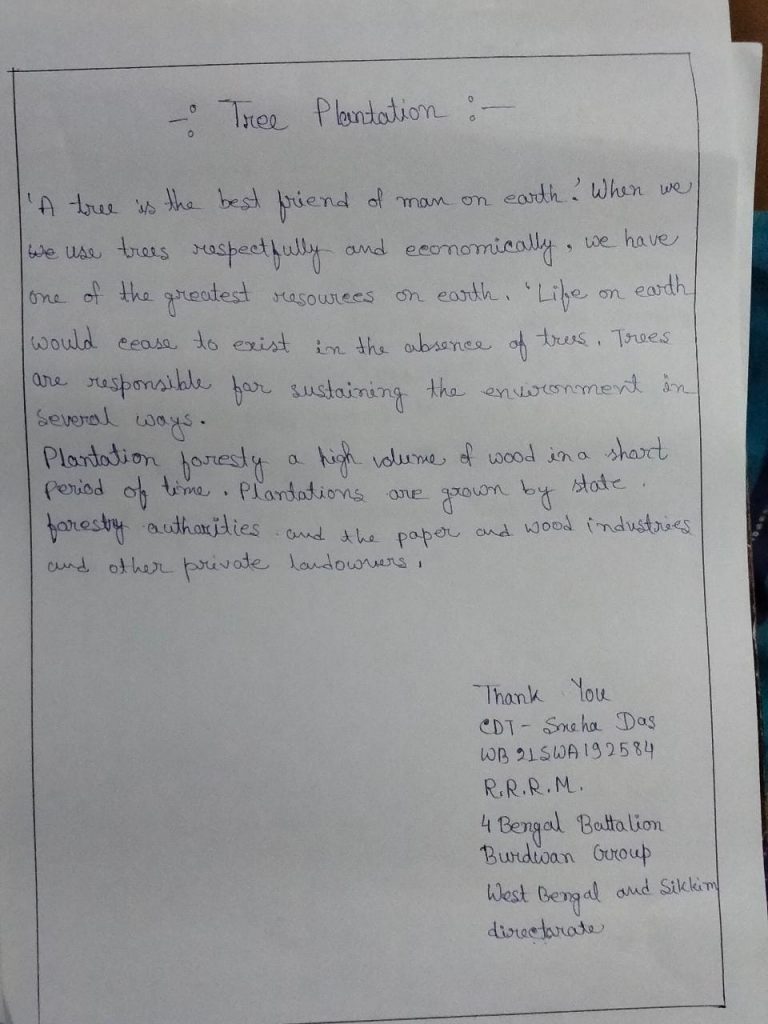 -: Tree Plantation :-
'A tree is the best friend of man on earth.' When we
we use trees respectfully and economically, we have
one of the greatest resources on earth. 'Life on earth
would cease to exist in the absence of trees. Trees
are responsible for sustaining the environment in
several ways.
Plantation foresty a high volume of wood in a short
period of time. Plantations are grown by state
forestry authorities and the paper and wood industries
and other private landowners.
Thank You
CDT- Sneha Das
WB21SWA192584
R.R.R.M.
4 Bengal Battalion
Burdwan Group
West Bengal and Sikkim
directarate